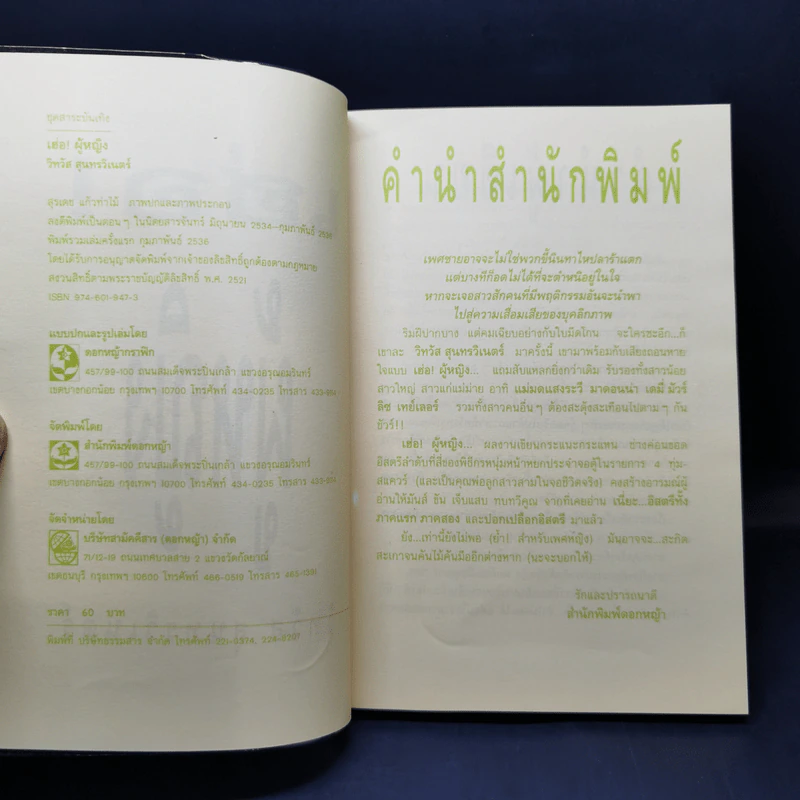 ชุดสาระบันเทิง
เฮ่อ! ผู้หญิง
วิทวัส สุนทรวิเนตร์
สุรเดช แก้วท่าไม้ ภาพปกและภาพประกอบ
ลงตีพิมพ์เป็นตอนๆ ในนิตยสารจันทร์ มิถุนายน 2534–กุมภาพันธ์ 2536
พิมพ์รวมเล่มครั้งแรก กุมภาพันธ์ 2536
โดยได้รับการอนุญาตจัดพิมพ์จากเจ้าของลิขสิทธิ์ถูกต้องตามกฎหมาย
สงวนลิขสิทธิ์ตามพระราชบัญญัติลิขสิทธิ์ พ.ศ. 2521
ISBN 974-601-947-3
แบบปกและรูปเล่มโดย
ดอกหญ้ากราฟิก
457/99-100 ถนนสมเด็จพระปิ่นเกล้า แขวงอรุณอมรินทร์
เขตบางกอกน้อย กรุงเทพฯ 10700 โทรศัพท์ 434-0235 โทรสาร
จัดพิมพ์โดย
สำนักพิมพ์ดอกหญ้า
457/99-100 ถนนสมเด็จพระปิ่นเกล้า แขวงอรุณอมรินทร์
เขตบางกอกน้อย กรุงเทพฯ 10700 โทรศัพท์ 434-0235 โทรสาร
จัดจำหน่ายโดย
บริษัทสามัคคีสาร (ดอกหญ้า) จำกัด
71/12-19 ถนนเทศบาลสาย 2 แขวงวัดกัลยาณ์
เขตธนบุรี กรุงเทพฯ 10600 โทรศัพท์ 466-0519 โทรสาร 465-1351
ราคา 60 บาท
พิมพ์ที่ บริษัทธรรมสาร จำกัด โทรศัพท์ 221-0374, 224-8207
คำนำสำนักพิมพ์
เพศชายอาจจะไม่ใช่พวกขี้นินทาไหปลาร้าแตก
แต่บางทีก็อดไม่ได้ที่จะตำหนิอยู่ในใจ
หากจะเจอสาวสักคนที่มีพฤติกรรมอันจะนำพา
ไปสู่ความเสื่อมเสียของบุคลิกภาพ
ริมฝีปากบาง แต่คมเฉียบอย่างกับใบมีดโกน จะใครซะอีก...ก็
เขาละ วิทวัส สุนทรวิเนตร์ มาครั้งนี้ เขามาพร้อมกับเสียงถอนหาย
ใจแบบ เฮ่อ! ผู้หญิง... แถมสับแหลกยิ่งกว่าเดิม รับรองทั้งสาวน้อย
สาวใหญ่ สาวแก่แม่ม่าย อาทิ แม่มดแสงระวี มาดอนน่า เดมี่ มัวร์
ลิซ เทย์เลอร์ รวมทั้งสาวคนอื่นๆ ต้องสะดุ้งสะเทือนไปตามๆ กัน
ชัวร์!!
เฮ่อ! ผู้หญิง... ผลงานเขียนกระแนะกระแหน ช่างค่อนขอด
อิสตรีลำดับที่สี่ของพิธีกรหนุ่มหน้าหยกประจำจอตู้ในรายการ 4 ทุ่ม-
สแควร์ (และเป็นคุณพ่อลูกสาวสามในจอชีวิตจริง) คงสร้างอารมณ์ผู้
อ่านให้มันส์ ขัน เจ็บแสบ ทบทวีคูณ จากที่เคยอ่าน เนี่ยะ...อิสตรีทั้ง
ภาคแรก ภาคสอง และปอกเปลือกอิสตรี มาแล้ว
ยัง...เท่านี้ยังไม่พอ (ย้ำ! สำหรับเพศหญิง) มันอาจจะ...สะกิด
สะเกาจนคันไม้คันมืออีกต่างหาก (นะจะบอกให้)
รักและปรารถนาดี
สำนักพิมพ์ดอกหญ้า